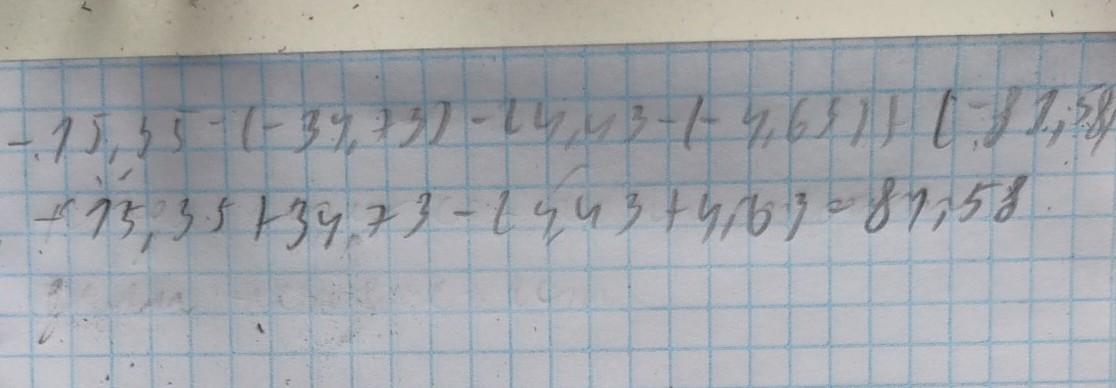 -15,35-(-34,73)-14,43-(-4,63)+(-81,58)
-15,35+34,73-14,43+4,63-81,58